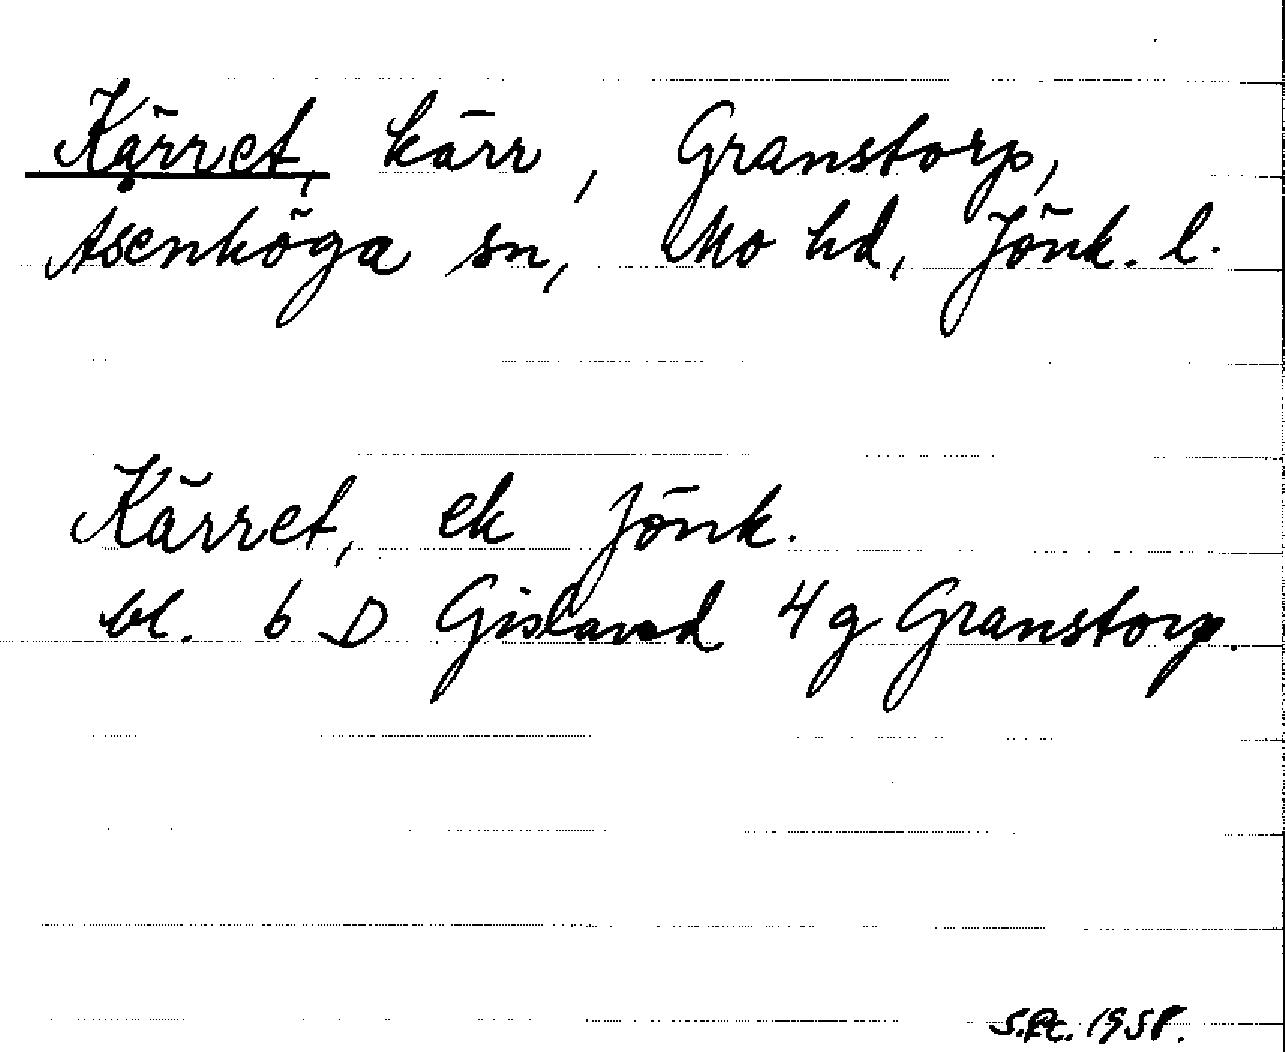 Kärret, kärr, Granstorp,
Åsenhöga sn, Mo hd, Jönk. l.
Kärret, ek Jönk.
bl. 6 D Gislaved 4 g Granstorp.
1958.